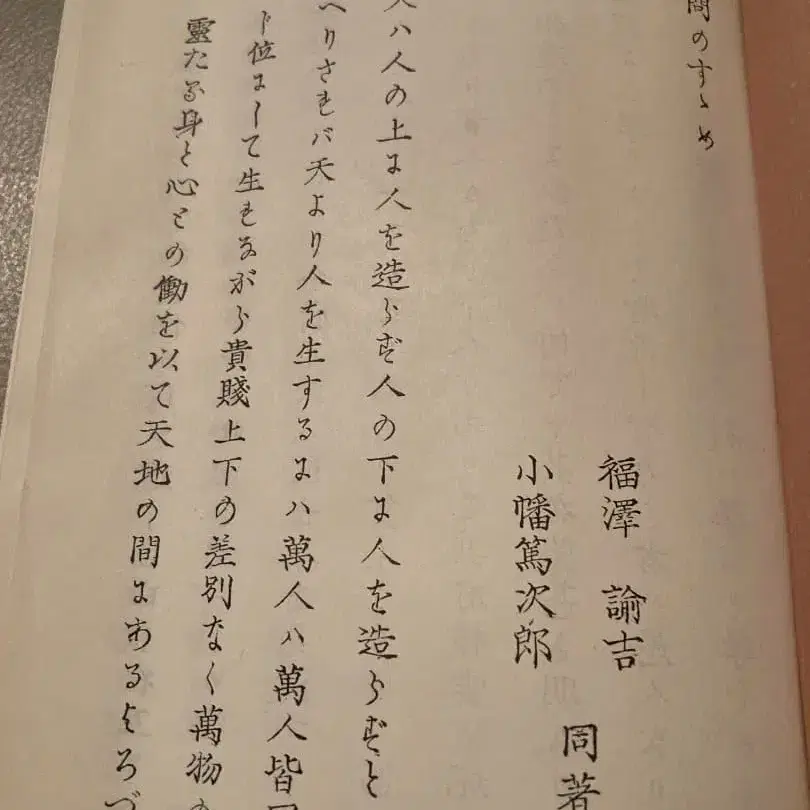 問のすゝめ
福澤 諭吉
小幡篤次郎
同著
天ハ人の上に人を造らず人の下に人を造らずと
へりされバ天より人を生ずるにハ萬人ハ萬人皆同
じ位にして生れながら貴賤上下の差別なく萬物の
靈たる身と心との働を以て天地の間にあるよろづ